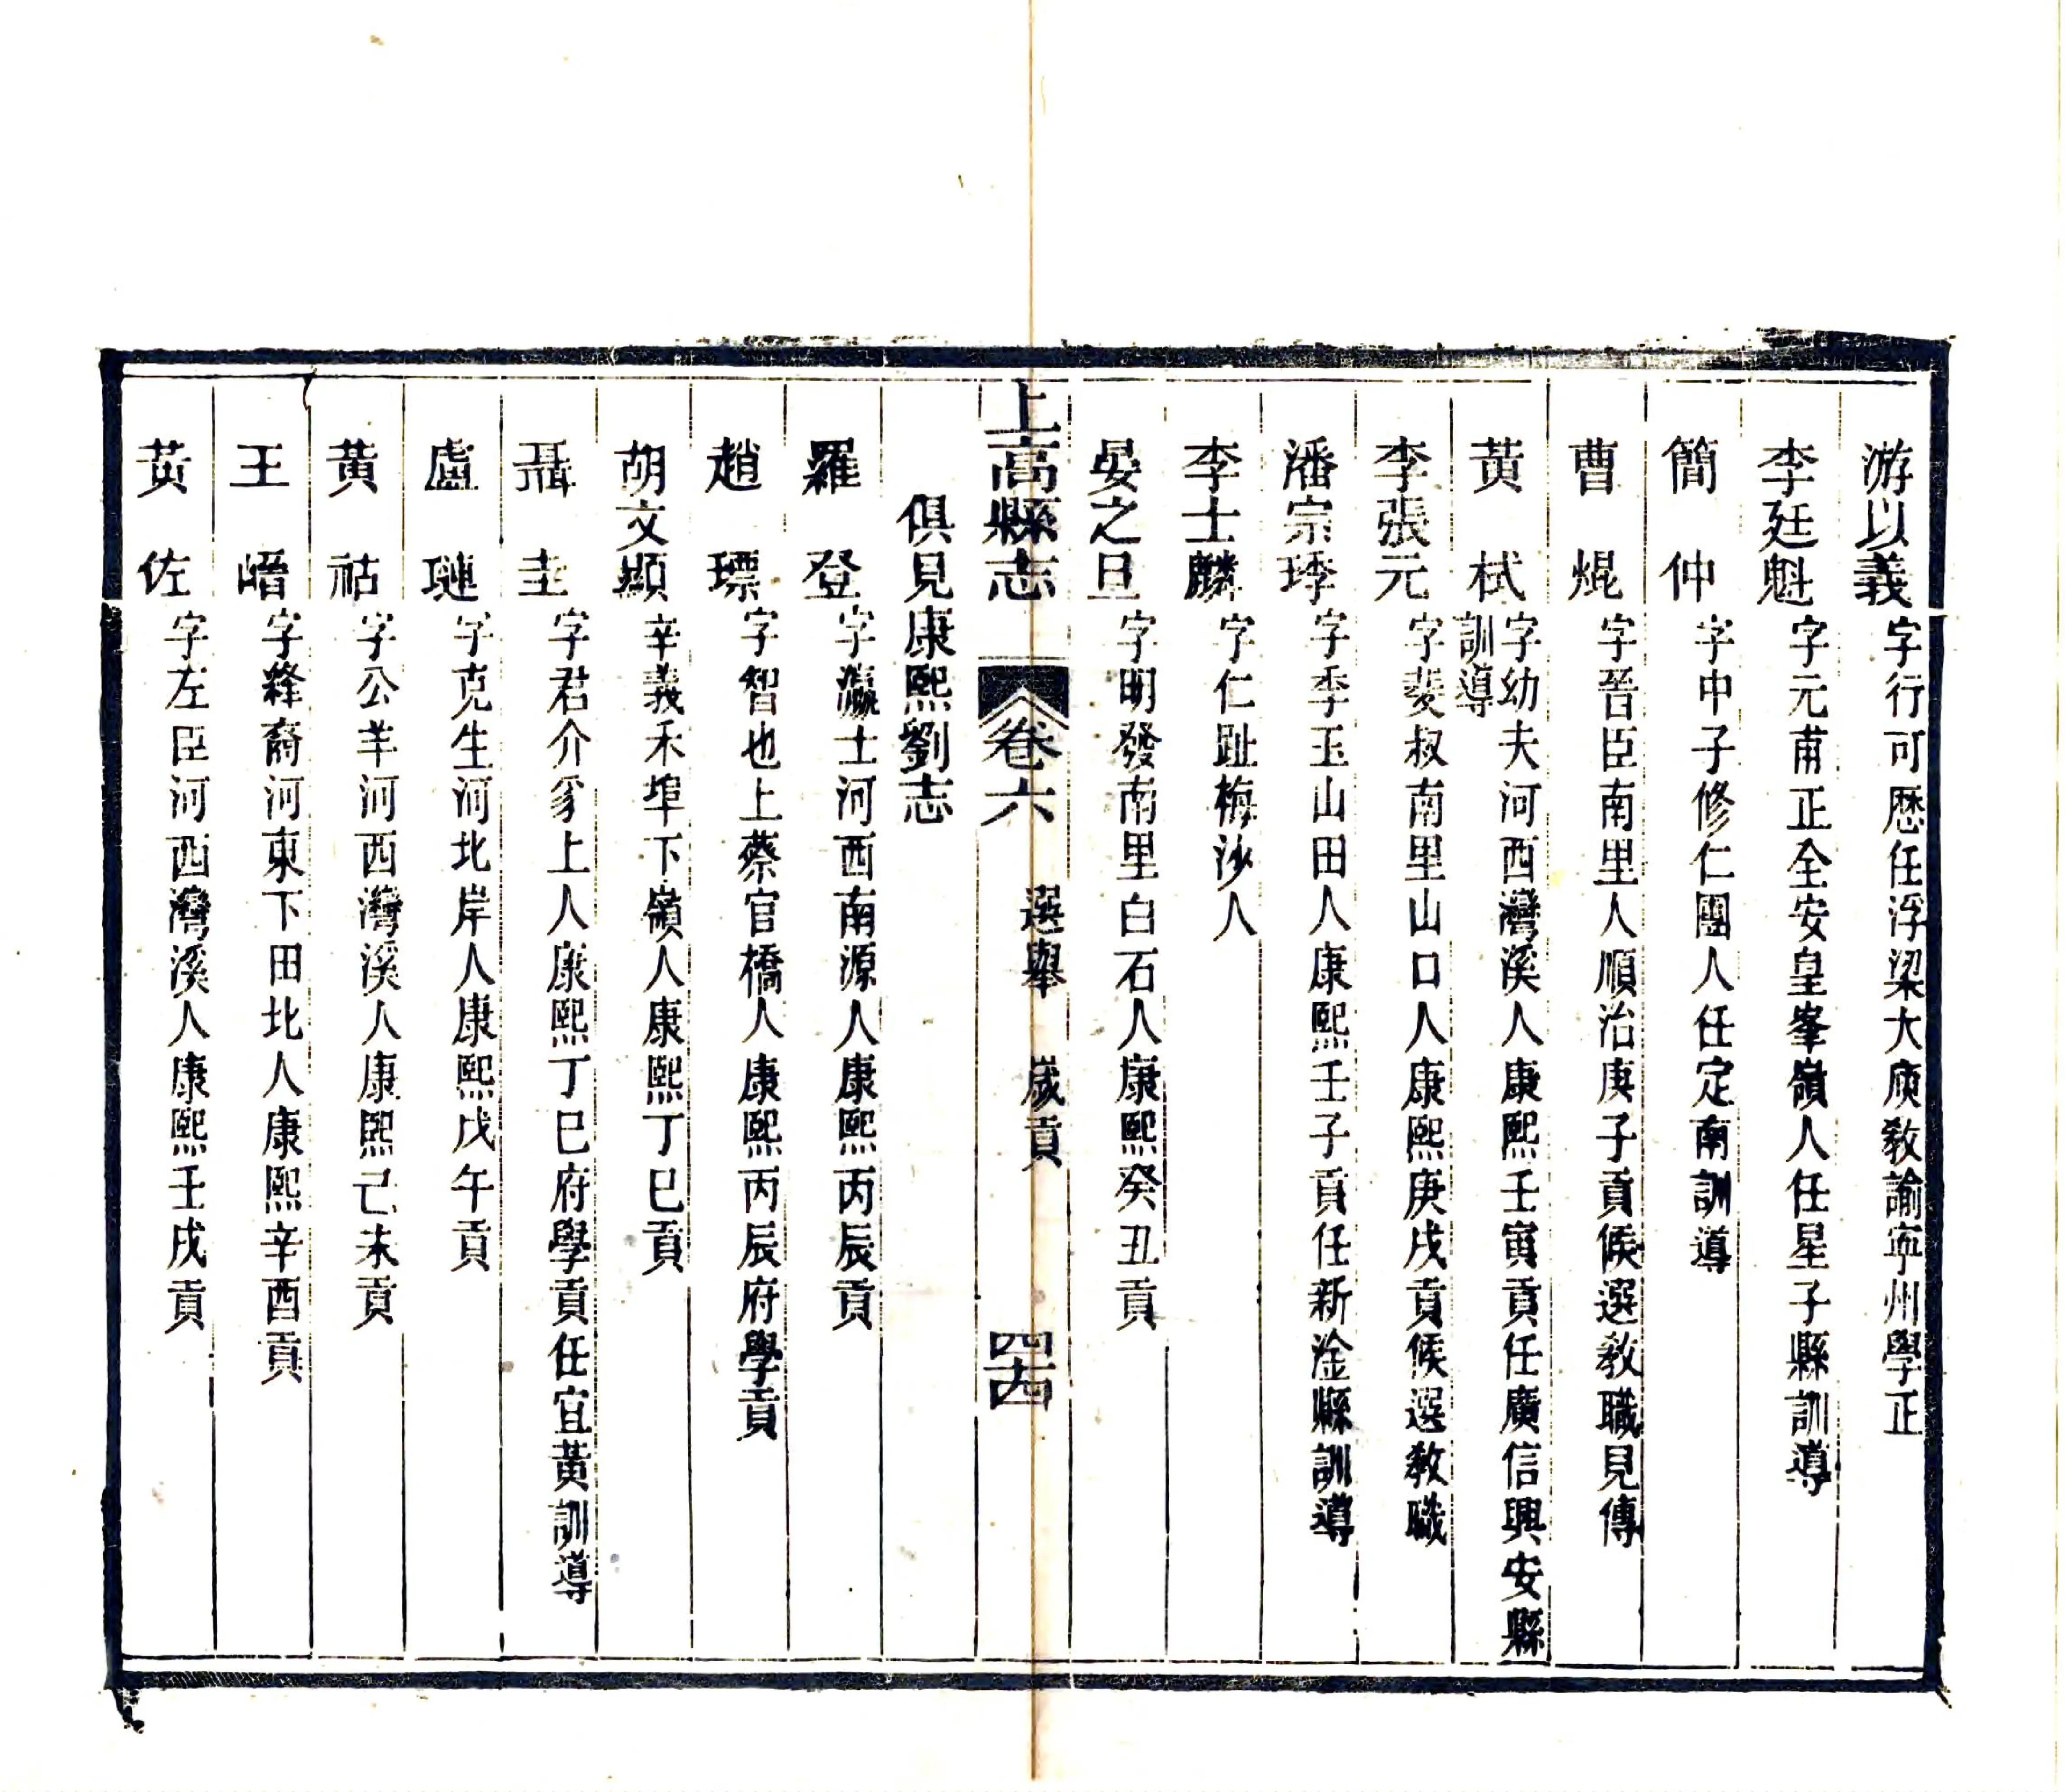 游以義 字行可歷任浮梁大庾教諭寧州學正
李廷魁 字元甫正全安皇峯嶺人任星子縣訓導
簡仲 字中子修仁團人任定南訓導
曹焜 字晉臣南里人順治庚子貢候選教職見傳
黃栻 字幼夫河西灣溪人康熙壬寅貢任廣信興安縣
訓導
李張元 字斐叔南里山口人康熙庚戌貢候選教職
潘宗琇 字季玉山田人康熙壬子貢任新淦縣訓導
李士麟 字仁趾梅沙人
晏之旦 字明發南里白石人康熙癸丑貢
上高縣志 卷六 選舉 歲貢 四十四
俱見康熙劉志
羅登 字瀛士河西南源人康熙丙辰貢
趙瓈 字智也上蔡官橋人康熙丙辰府學貢
胡文顯 辛義禾埠下嶺人康熙丁巳貢
聶圭 字君介豸上人康熙丁巳府學貢任宜黃訓導
盧璉 字克生河北岸人康熙戊午貢
黃祜 字公羊河西灣溪人康熙己未貢
王㬢 字絳裔河東下田北人康熙辛酉貢
黃佐 字左臣河西灣溪人康熙壬戌貢